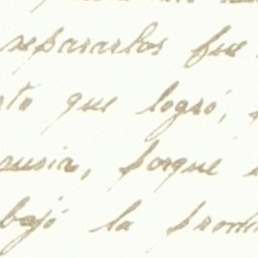 separarlos fue
que logró,
ausia, porque
bajó la prom